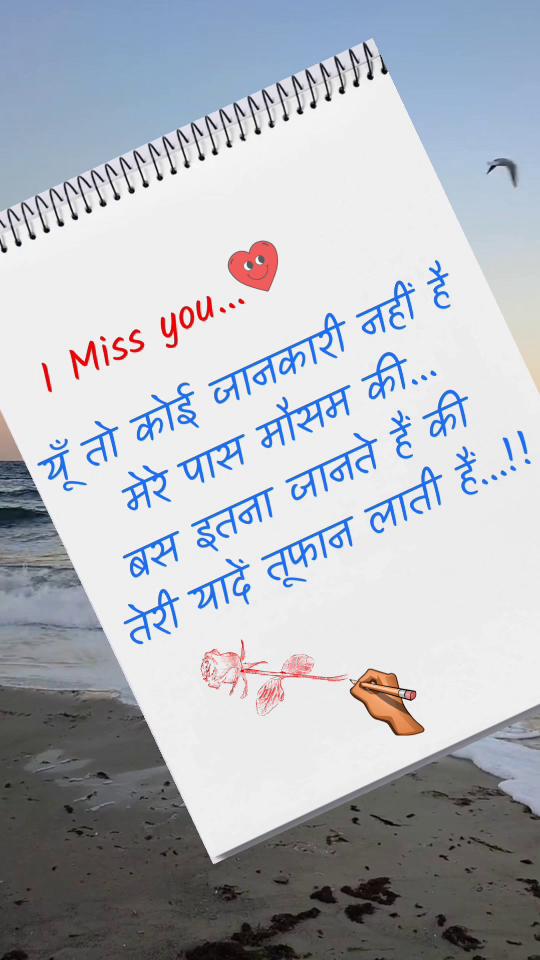 I Miss you...
यूँ तो कोई जानकारी नहीं है
मेरे पास मौसम की...
बस इतना जानते हैं की
तेरी यादें तूफान लाती हैं...!!